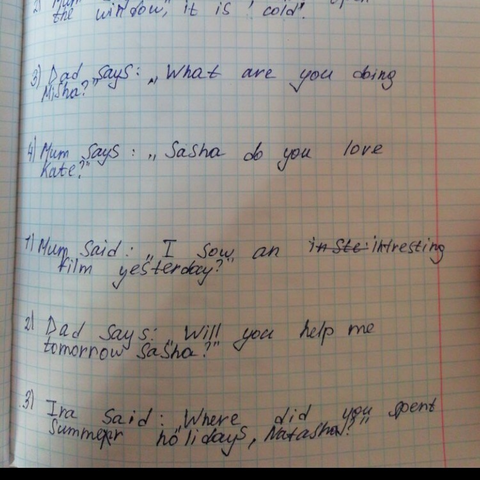 the window, it is cold".
3) Dad says: „What are you doing
Misha?"
4) Mum says: „Sasha do you love
Kate?"
1) Mum said: „I sow an intresting
film yesterday?"
2) Dad says: „Will you help me
tomorrow Sasha?"
3) Ira said: „Where did you spent
Summepr holidays, Natasha?"